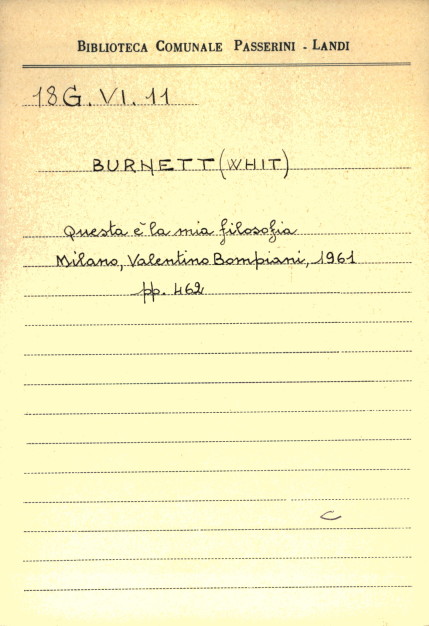 BIBLIOTECA COMUNALE PASSERINI - LANDI
18G. VI. 11
BURNETT (WHIT)
Questa è la mia filosofia
Milano, Valentino Bompiani, 1961
pp. 462
C